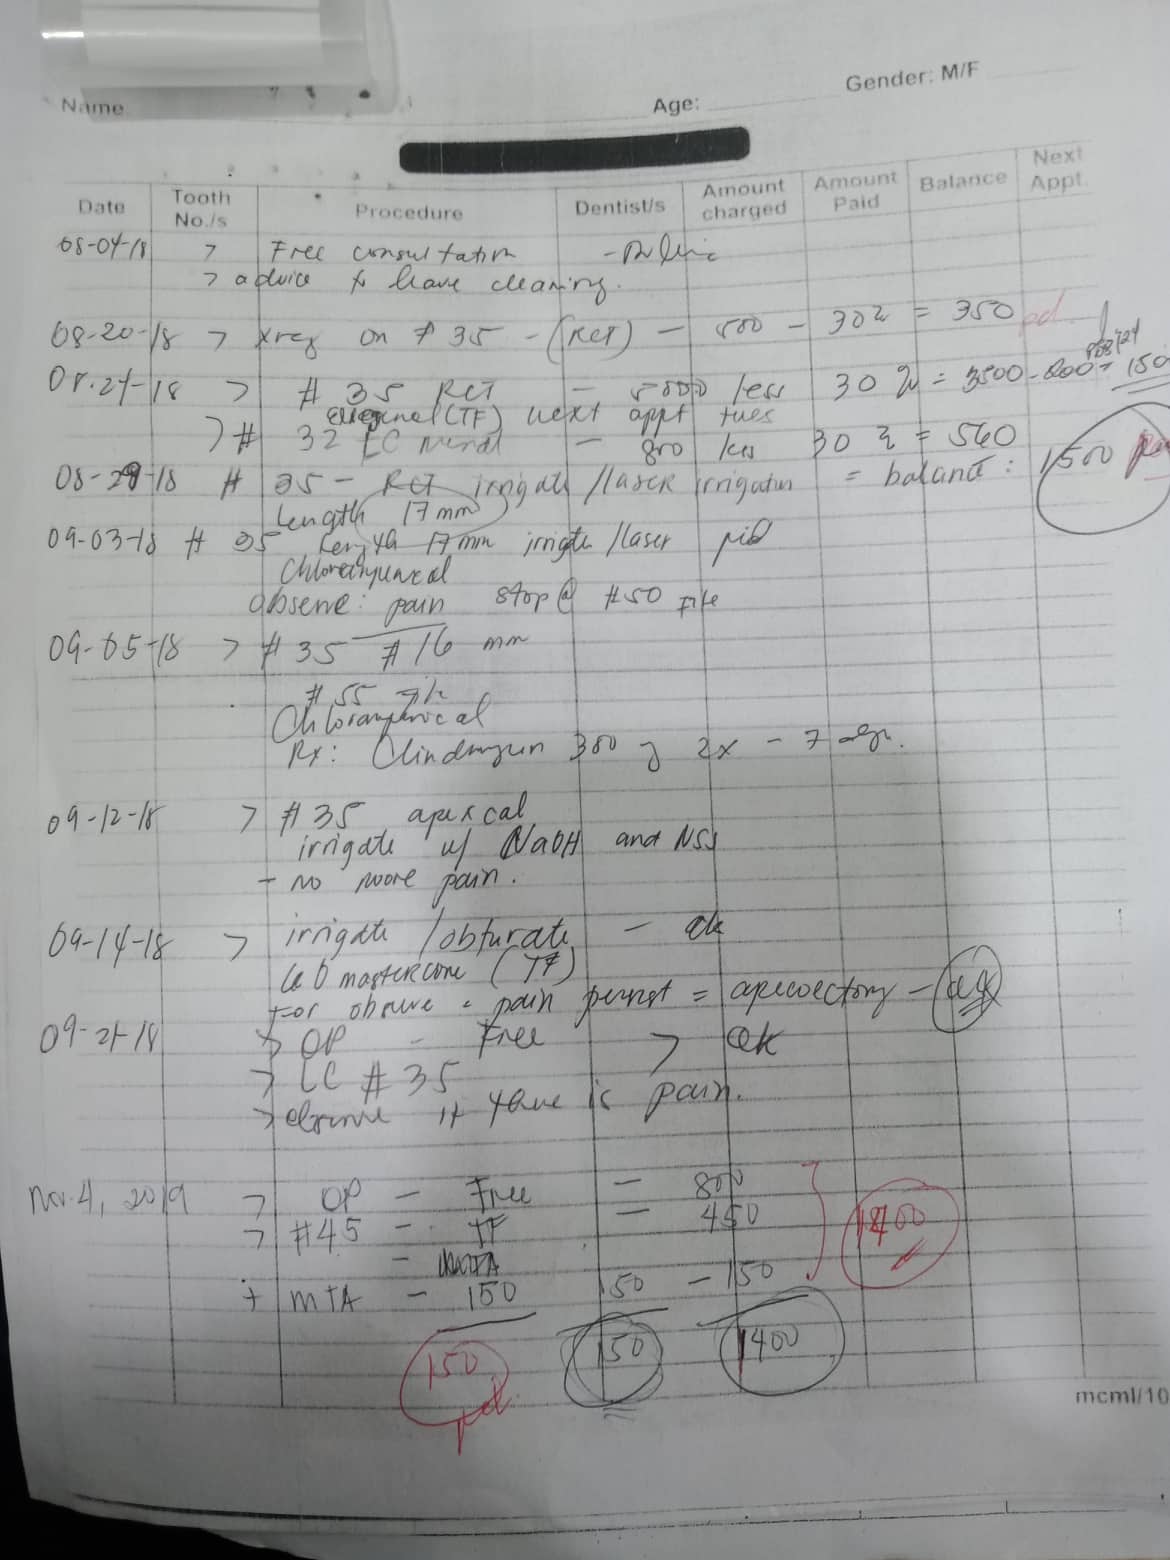 Name Age: Gender: M/F
Date Tooth No./s Procedure Dentist/s Amount charged Amount Paid Balance Next Appt.
08-04-18 > Free consultation
> advice to have cleaning.
08-20-18 > xray on # 35 - (RCT) - 500 - 30% = 350 pd.
18 > # 35 RCT - 5000 less 30% = 3500
(TF) next appt tues
> # 32 LC - 800 less 30% = 560
08-29-18 # 35 - RCT irrigate / laser irrigation = balance: 1500
Length 17 mm
09-03-18 # 35 Length 17 mm irrigate / laser
observe: pain stop @ #50 File
09-05-18 > # 35 # 16 mm
# 55
Rx: 300 2x - 7
09-12-18 > # 35 apexcal
irrigate w/ NaOH and NSS
- no more pain.
09-14-18 > irrigate / obturate - ok
mastercone (TF)
For observe = pain persist = apicoectomy
18 > OP - Free > ok
> LC # 35
> observe if there is pain.
Nov. 4, 2019 > OP - Free - 800
> #45 - TF - 450
+ MTA - 150 150 - 150
1400
150 pd. 150 1400
mcml/10